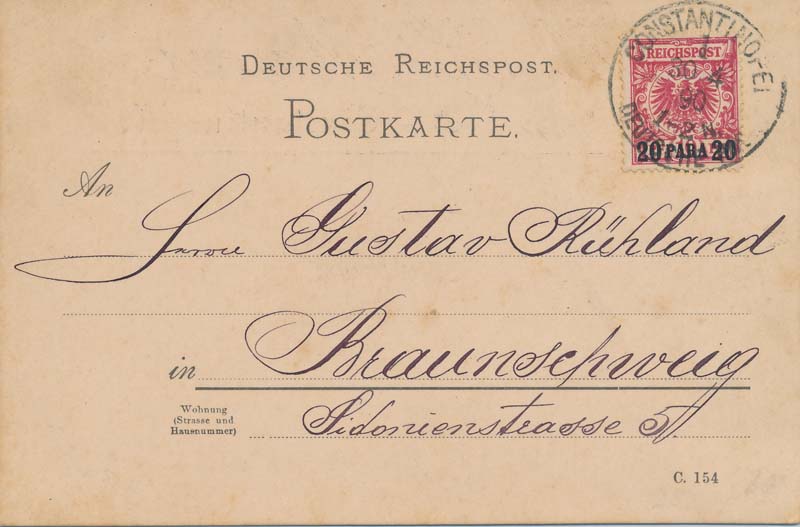 DEUTSCHE REICHSPOST.
POSTKARTE.
REICHSPOST
20 PARA 20
CONSTANTINOPEL 1
30 4
90
1-2 N.
An
Herrn Gustav Rühland
in Braunschweig
Wohnung
(Strasse und
Hausnummer)
Sidonienstrasse 5.
C. 154